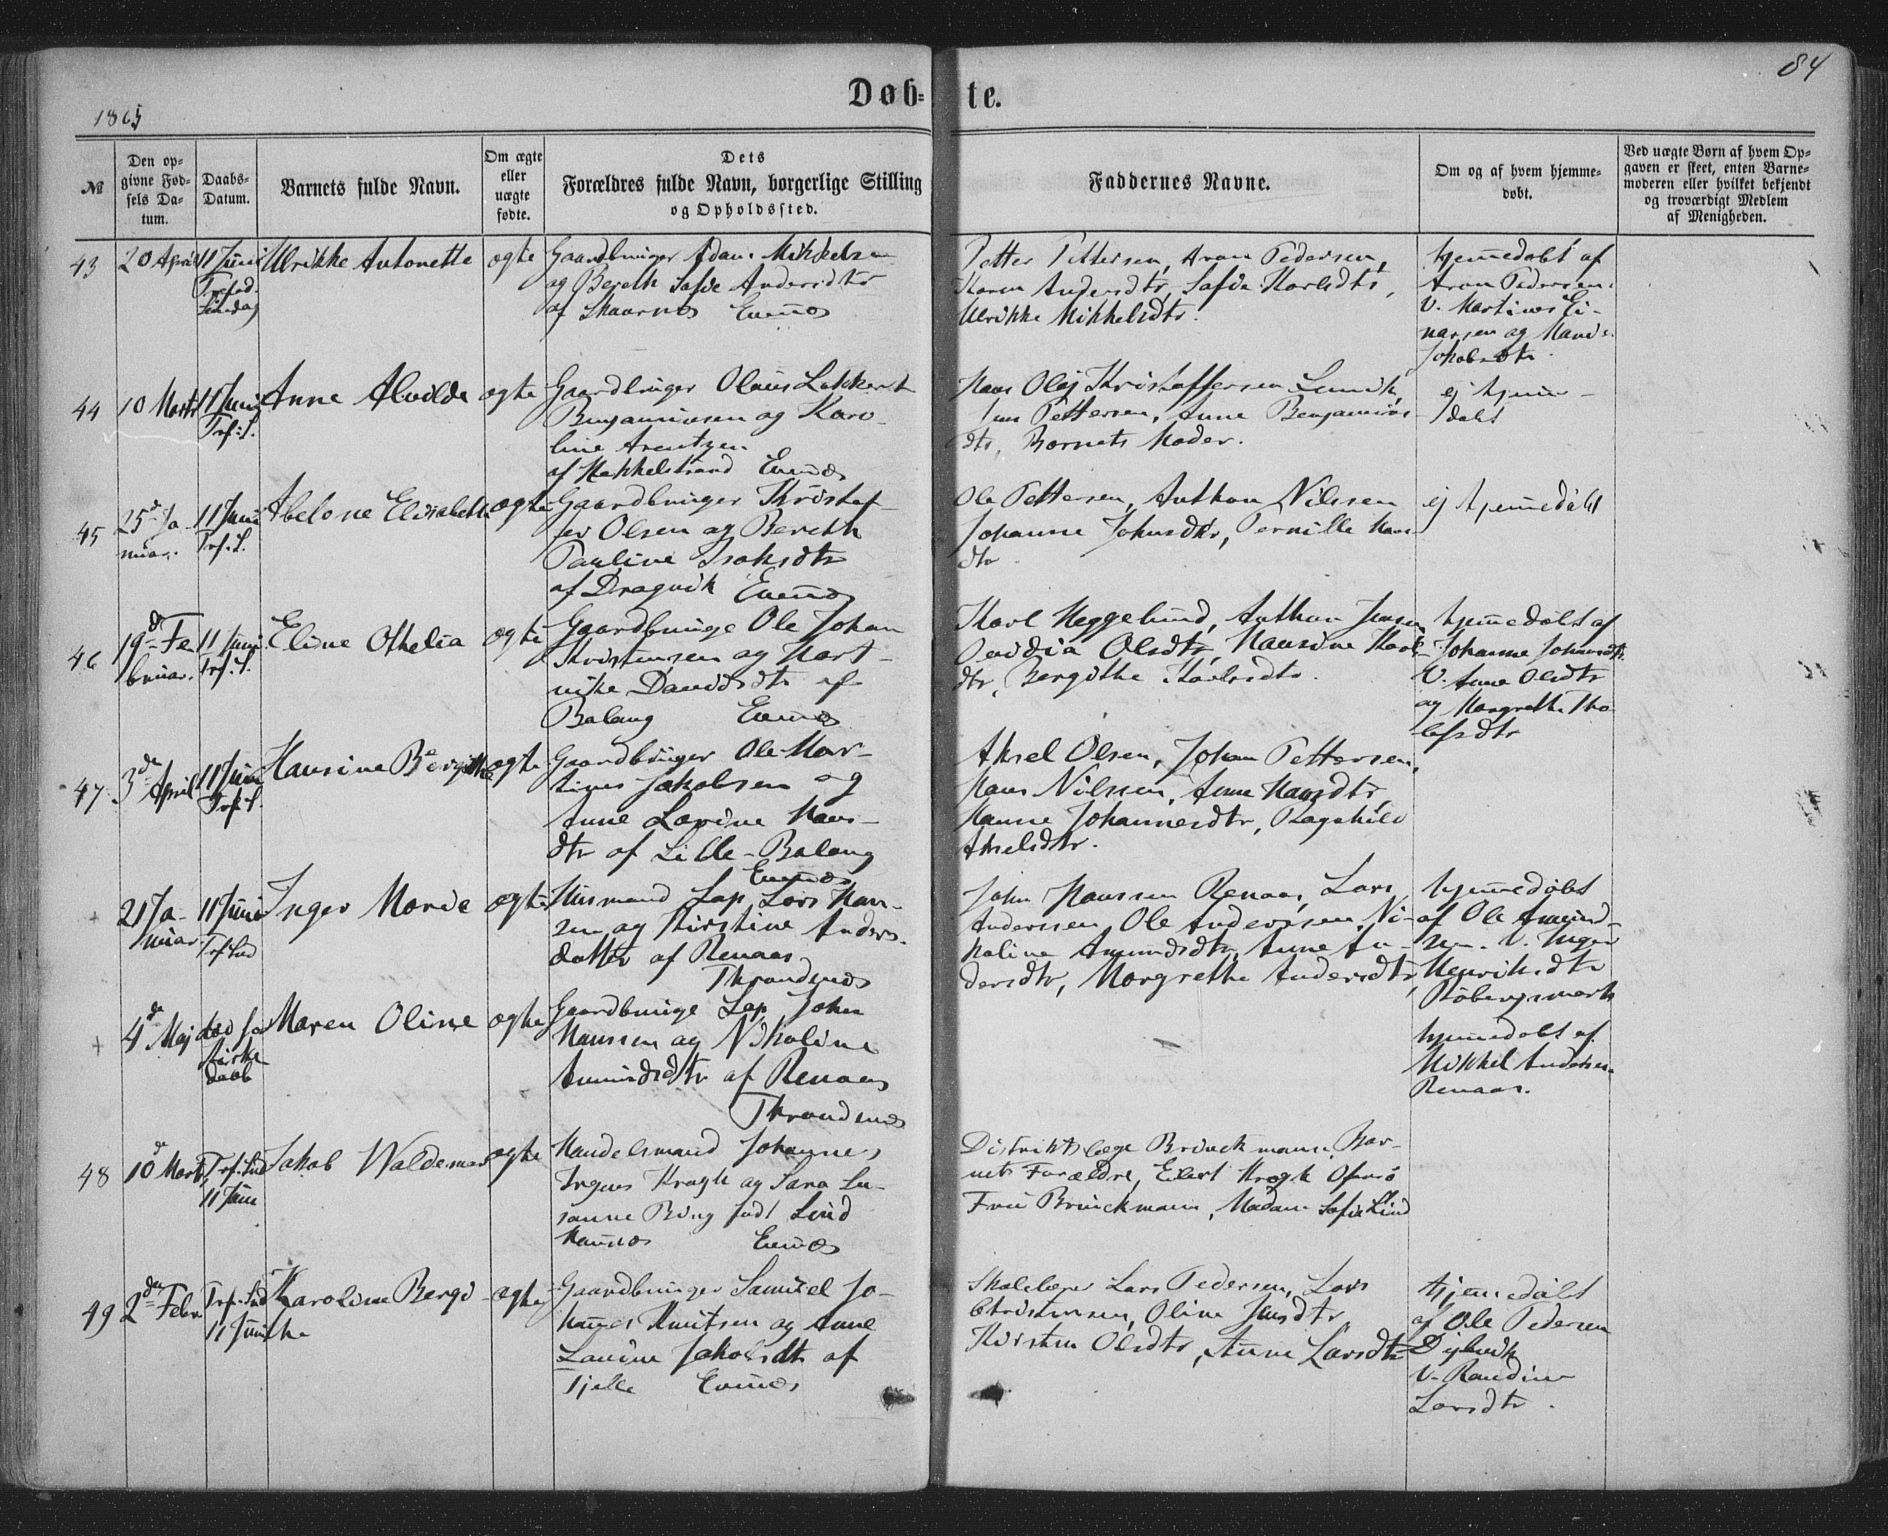 84
Døb-te.
1865
№
Den op-
givne Fød-
sels Da-
tum.
Daabs-
Datum.
Barnets fulde Navn.
Om ægte
eller
uægte
fødte.
Dets
Forældres fulde Navn, borgerlige Stilling
og Opholdssted.
Faddernes Navne.
Om og af hvem hjemme-
døbt.
Ved uægte Børn af hvem Op-
gaven er skeet, enten Barne-
moderen eller hvilket bekjendt
og troværdigt Medlem
af Menigheden.
43
20 April
11 Juni
Trefod.
Sundag
Ulrikke Antonette
ægte
Gaardbruger Adam Mikkelsen
og Bereth Sofie Andersdtr
af Skaarnes Evenæs
Petter Pettersen, Aron Pedersen,
Karen Andersdtr, Sofie Karlsdtr,
Ulrikke Mikkelsdtr.
hjemmedøbt af
Aron Pedersen.
V. Martines Ei-
narsen og
Jakobsdtr.
44
10 Marts
11 Juni
Trf. S.
Anne Alvilde
ægte
Gaardbruger Olaus Lokkert
Benjaminsen og Karo-
line Arentzen
af Hakkelstrand Evenæs
Hans Olaj Kristoffersen Lenvik,
Pettersen, Anne Benjamins-
dtr, Barnets Moder.
ej hjem-
døbt
45
25de Ja-
nuar.
11 Juni
Trf. S.
Abelone Elisabeth
ægte
Gaardbruger Kristof-
fer Olsen og Bereth
Pauline Isaksdtr
af Dragvik Evenæs
Ole Pettersen, Anthon Nilsen
Johanne Johnsdtr, Pernille Hans-
dtr
ej hjemmedøbt
46
19de Fe-
bruar.
11 Juni
Trf. S.
Eline Othelia
ægte
Gaardbruge Ole Johan
Kristensen og Hart-
vike Davidsdtr af
Balang Evenæs
Karl Heggelund, Anthon Jensen
Ovidia Olsdtr, Hansine Karls-
dtr, Bergithe Karlsdtr.
hjemmedøbt af
Johanne Johansdtr.
V. Anne Olsdtr
og Margrethe Tho-
47
3de April
11 Juni
Trf. S.
Hansine Bergithe
ægte
Gaardbruger Ole Mar-
tines Jakobsen og
Anne Lovine Hans-
dtr af Lille-Balang
Evenæs
Aksel Olsen, Johan Pettersen,
Hans Nilssen, Anne Hansdtr
Hanne Johannesdtr, Ragnhild
Akselsdtr.
+
21 Ja-
nuar
11 Juni
Trf. Snd
Inger Marie
ægte
Husmand Lap Lars Han-
sen og Kirstine Anders-
datter af Renaas
Throndenæs
John Hanssen Renaas, Lars
Anderssen, Ole Anderssen, Ni-
koline Amundsdtr, Anne An-
dersdtr, Margrethe Andersdtr,
hjemmedøbt
af Ole Amund-
sen. V. Inger
Henriksdtr
Røbergsmark
+
4de Maj
død før
Kirke-
daab
Maren Oline
ægte
Gaardbruge Lap John
Hanssen og Nikoline
Amundsdtr af Renaas
Throndenæs
hjemmedøbt af
Mikkel Andersen
Renaas.
48
10de Marts
Trf. Snd
11 Juni
Jakob Waldemar
ægte
Handelsmand Johannes
Irgens Krogh og Sara Su-
sanne Bing født Lind
Evenæs
Distriktslæge Brinckmann, Bar-
nets Forældre, Eilert Krogh
Frue Brinckmann, Madam Sofie Lind
49
2den Febr
Trf. Snd
11 Juni
Karoline Bergi-
the
ægte
Gaardbruger Samuel Jo-
hannes Knutsen og Anne
Lavine Jakobsdtr af
Tjelle Evenæs
Skolelærer Lars Pedersen, Lars
Christensen, Oline Jensdtr
Kirsten Olsdtr, Anne Larsdtr
Hjemmedøbt
af Ole Pedersen
Dybvik
V. Randine
Larsdtr.